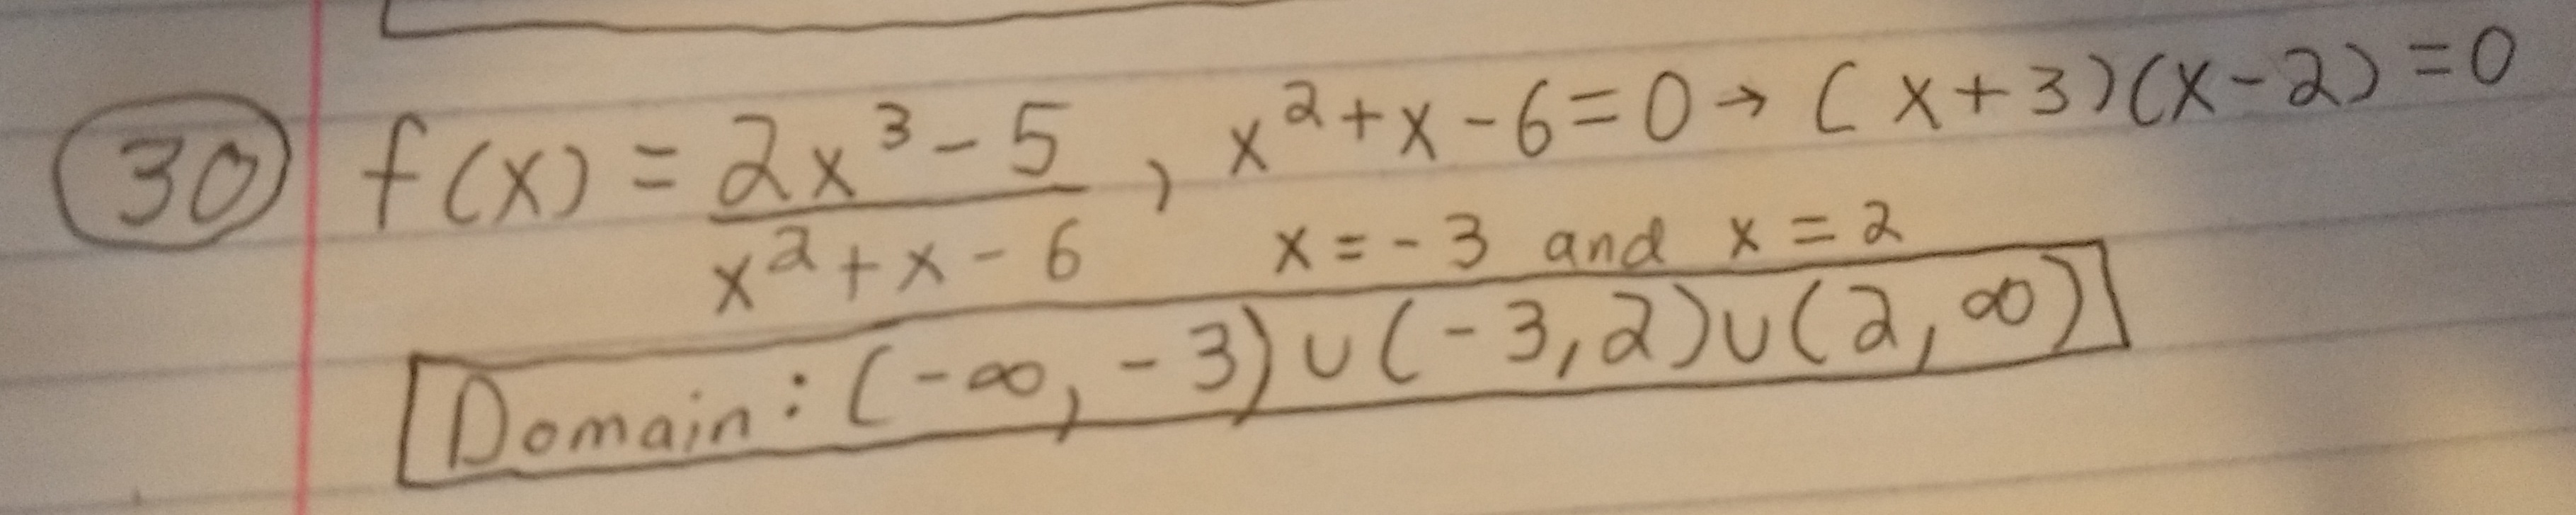 30 f(x) = (2x³ - 5)/(x² + x - 6), x² + x - 6 = 0 → (x + 3)(x - 2) = 0
x = -3 and x = 2
Domain: (-∞, -3) ∪ (-3, 2) ∪ (2, ∞)